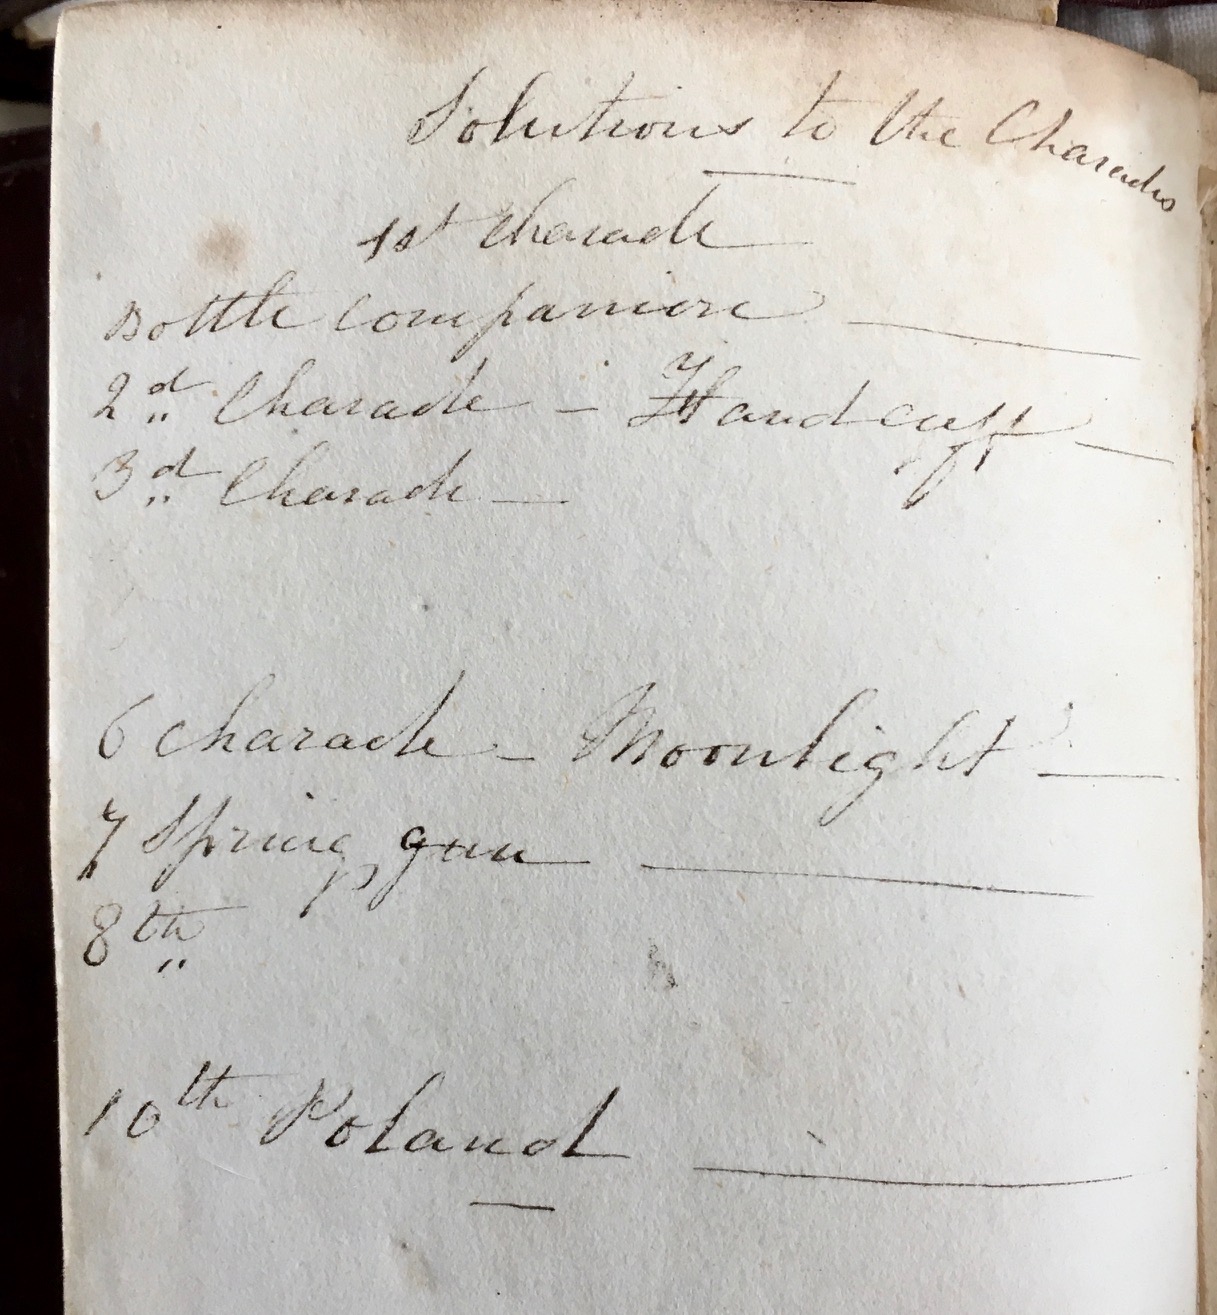 Solutions to the Charades
1st Charade
Bottle Companion
2d Charade - Handcuff
3d Charade
6 charade - Moonlight
7 Spring gun
8th
10th Poland